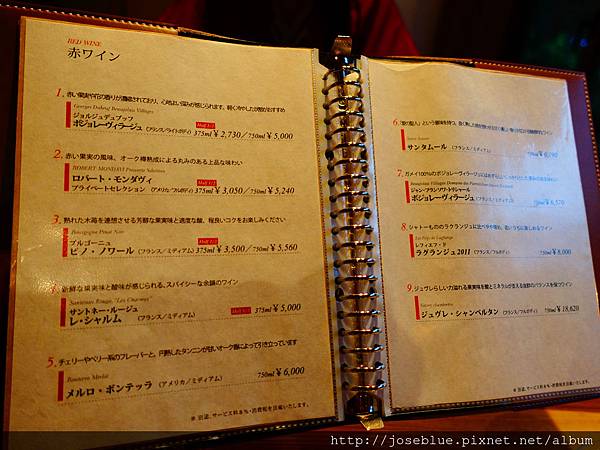 RED WINE
赤ワイン
1. 赤い果実や花の香りが濃縮されており、心地よい深みが感じられます。軽く冷やしたのがおすすめ
Georges Duboeuf Beaujolais Villages
ジョルジュデュブッフ
ボジョレーヴィラージュ (フランス/ライトボディ) Half 1/2 375ml ¥2,730/750ml ¥5,000
2. 赤い果実の風味、オーク樽熟成による丸みのある上品な味わい
ROBERT MONDAVI Private Selection
ロバート・モンダヴィ
プライベートセレクション (アメリカ/フルボディ) Half 1/2 375ml ¥3,050/750ml ¥5,240
3. 熟れた木苺を連想させる芳醇な果実味と適度な酸、程良いコクをお楽しみください
Bourgogne Pinot Noir
ブルゴーニュ
ピノ・ノワール (フランス/ミディアム) Half 1/2 375ml ¥3,500/750ml ¥5,560
4. 新鮮な果実味と酸味が感じられる、スパイシーな余韻のワイン
Santenay Rouge, "Les Charmes"
サントネー・ルージュ
レ・シャルム (フランス/ミディアム) Half 1/2 375ml ¥5,000
5. チェリーやベリー系のフレーバーと、円熟したタンニンが甘いオーク香によって引き立っています
Bonterra Merlot
メルロ・ボンテッラ (アメリカ/ミディアム) 750ml ¥6,000
※ 別途、サービス料8%・消費税を頂戴いたします。
6.
サンタムール (フランス/ミディアム) 750ml ¥6,190
7. ガメイ100%の
ジャン・フランソワ・トリシャール
ボジョレーヴィラージュ (フランス/ミディアム) 750ml ¥6,570
8. シャトーもののラグランジュに比べやや軽め、若いうちに楽しめるワイン
Les Fiefs de Lagrange
レフィエフ・ド
ラグランジュ2011 (フランス/フルボディ) 750ml ¥8,000
9. ジュヴレらしい力溢れる果実味を酸とミネラルが支える抜群のバランスを保つワイン
Gevrey chambertin
ジュヴレ・シャンベルタン (フランス/フルボディ) 750ml ¥18,620
※ 別途、サービス料8%・消費税を頂戴いたします。
http://joseblue.pixnet.net/album